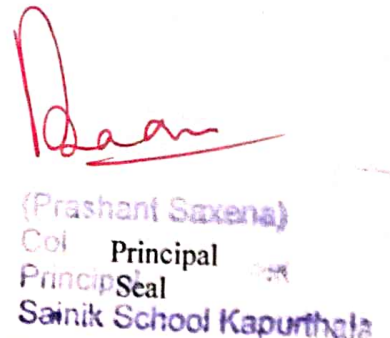 (Prashant Saxena)
Col
Principal
Principal
Seal
Sainik School Kapurthala